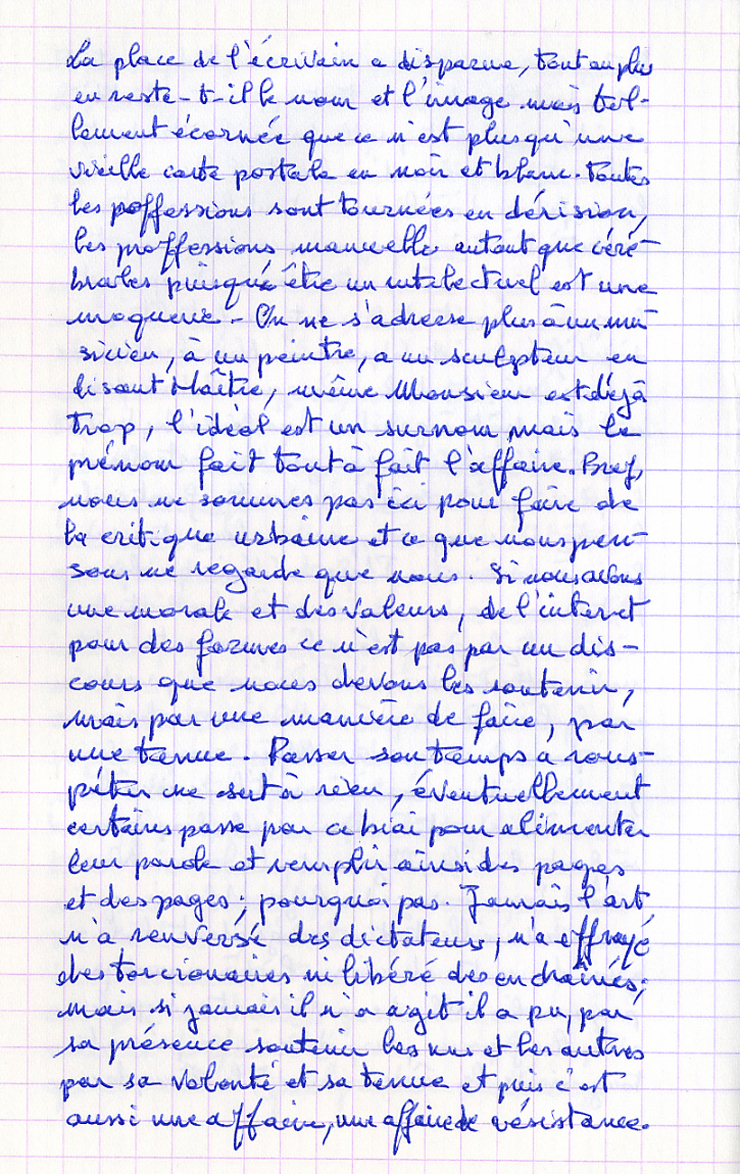 La place de l'écrivain a disparue, tout au plus
en reste-t-il le nom et l'image mais tel-
lement écornée que ce n'est plus qu'une
vieille carte postale en noir et blanc. Toutes
les poffessions sont tournées en dérision,
les proffessions manuelle autant que céré-
brales puisqu'être un intelectuel est une
moquerie - On ne s'adresse plus à un mu-
sicien, à un peintre, a un sculpteur en
disant Maître, même Monsieur est déjà
trop, l'idéal est un surnom mais le
prénom fait tout à fait l'affaire. Bref,
nous ne sommes pas ici pour faire de
la critique urbaine et ce que nous pen-
sons ne regarde que nous. Si nous avons
une morale et des valeurs, de l'interet
pour des formes ce n'est pas par un dis-
cours que nous devons les soutenir,
mais par une manière de faire, par
une tenue. Passer son temps a rous-
péter ne sert à rien, éventuellement
certains passe par ce biai pour alimenter
leur parole et remplir ainsi des pages
et des pages; pourquoi pas. Jamais l'art
n'a renversé des dictateurs, n'a effrayé
des torcionaires ni libéré des enchaînés;
mais si jamais il n'a agit il a pu, par
sa présence soutenir les uns et les autres
par sa volonté et sa tenue et puis c'est
aussi une affaire, une affaire de résistance.